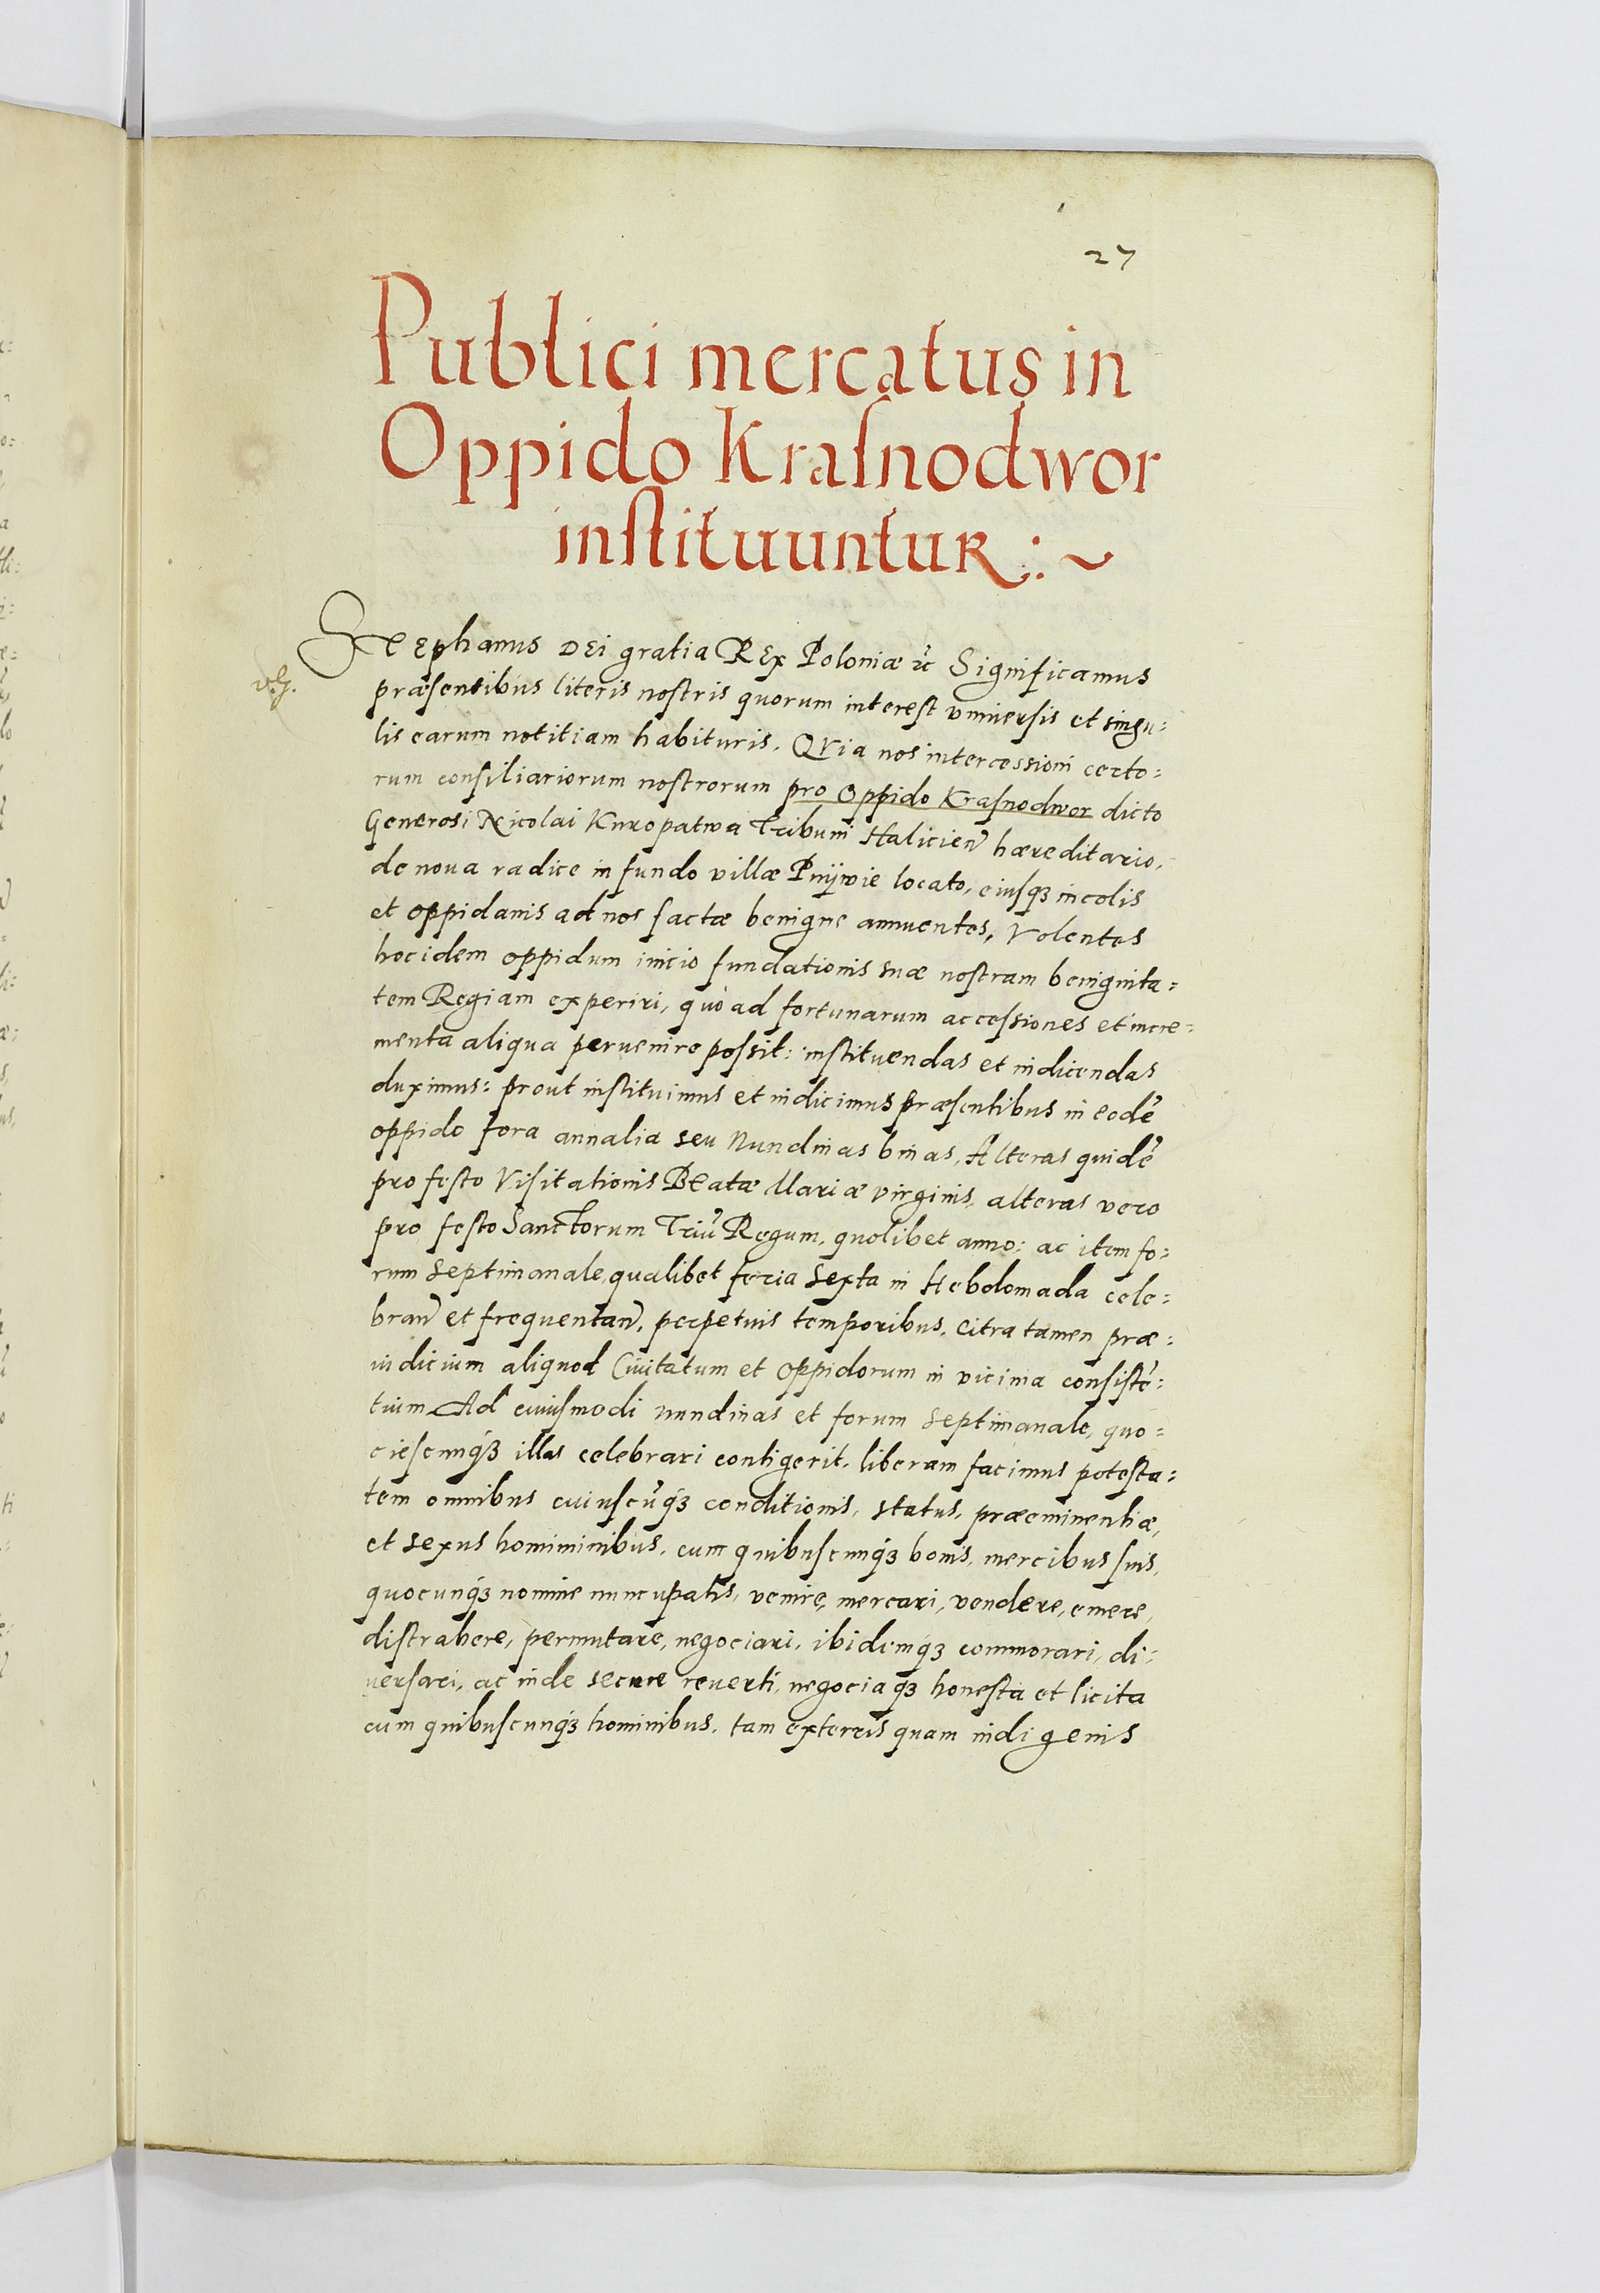 27
Publici mercatus in
Oppido Kraſnodwor
inſtituuntur :~
Stephanus DEi gratia REx Poloniæ ꝛc̃ Significamus
præsentibus literis nostris quorum interest vniuersis et singu=
lis earum notitiam habituris. QVia nos intercessioni certo=
rum consiliariorum nostrorum pro Oppido Kraſnodwor dicto
Generosi Nicolai Kuropatwa Tribuni Halicien̄ hæreditario,
de noua radice in fundo villæ Pnijwie locato, eiusqꝫ incolis
et oppidanis ad nos factæ benigne annuentes, Volentes
hoc idem oppidum initio fundationis suæ nostram benignita=
tem Regiam experiri, quò ad fortunarum accessiones et incre=
menta aliqua peruenire possit: instituendas et indicendas
duximus: prout instituimus et indicimus præsentibus in eodē
oppido fora annalia seu Nundinas binas, Alteras quidē
pro festo Visitationis BEatæ Mariæ virginis, alteras vero
pro festo Sanctorum Triū Regum, quolibet anno: ac item fo=
rum Septimanale, qualibet feria Sexta in Hebdomada cele=
bran̄ et frequentan̄, perpetuis temporibus, citra tamen præ=
iudicium aliquod Ciuitatum et Oppidorum in vicinia consistē=
tium. Ad cuiusmodi nundinas et forum Septimanale, quo=
ciescunqꝫ illas celebrari contigerit, liberam facimus potesta=
tem omnibus cuiuscūqꝫ conditionis, status, præeminentiæ,
et sexus homininibus, cum quibuscunqꝫ bonis, mercibus suis,
quocunqꝫ nomine nuncupatis, venire, mercari, vendere, emere,
distrahere, permutare, negociari, ibidemqꝫ commorari, di=
uersari, ac inde secure reuerti, negociaqꝫ honesta et licita
cum quibuscunqꝫ hominibus, tam exteris quam indigenis